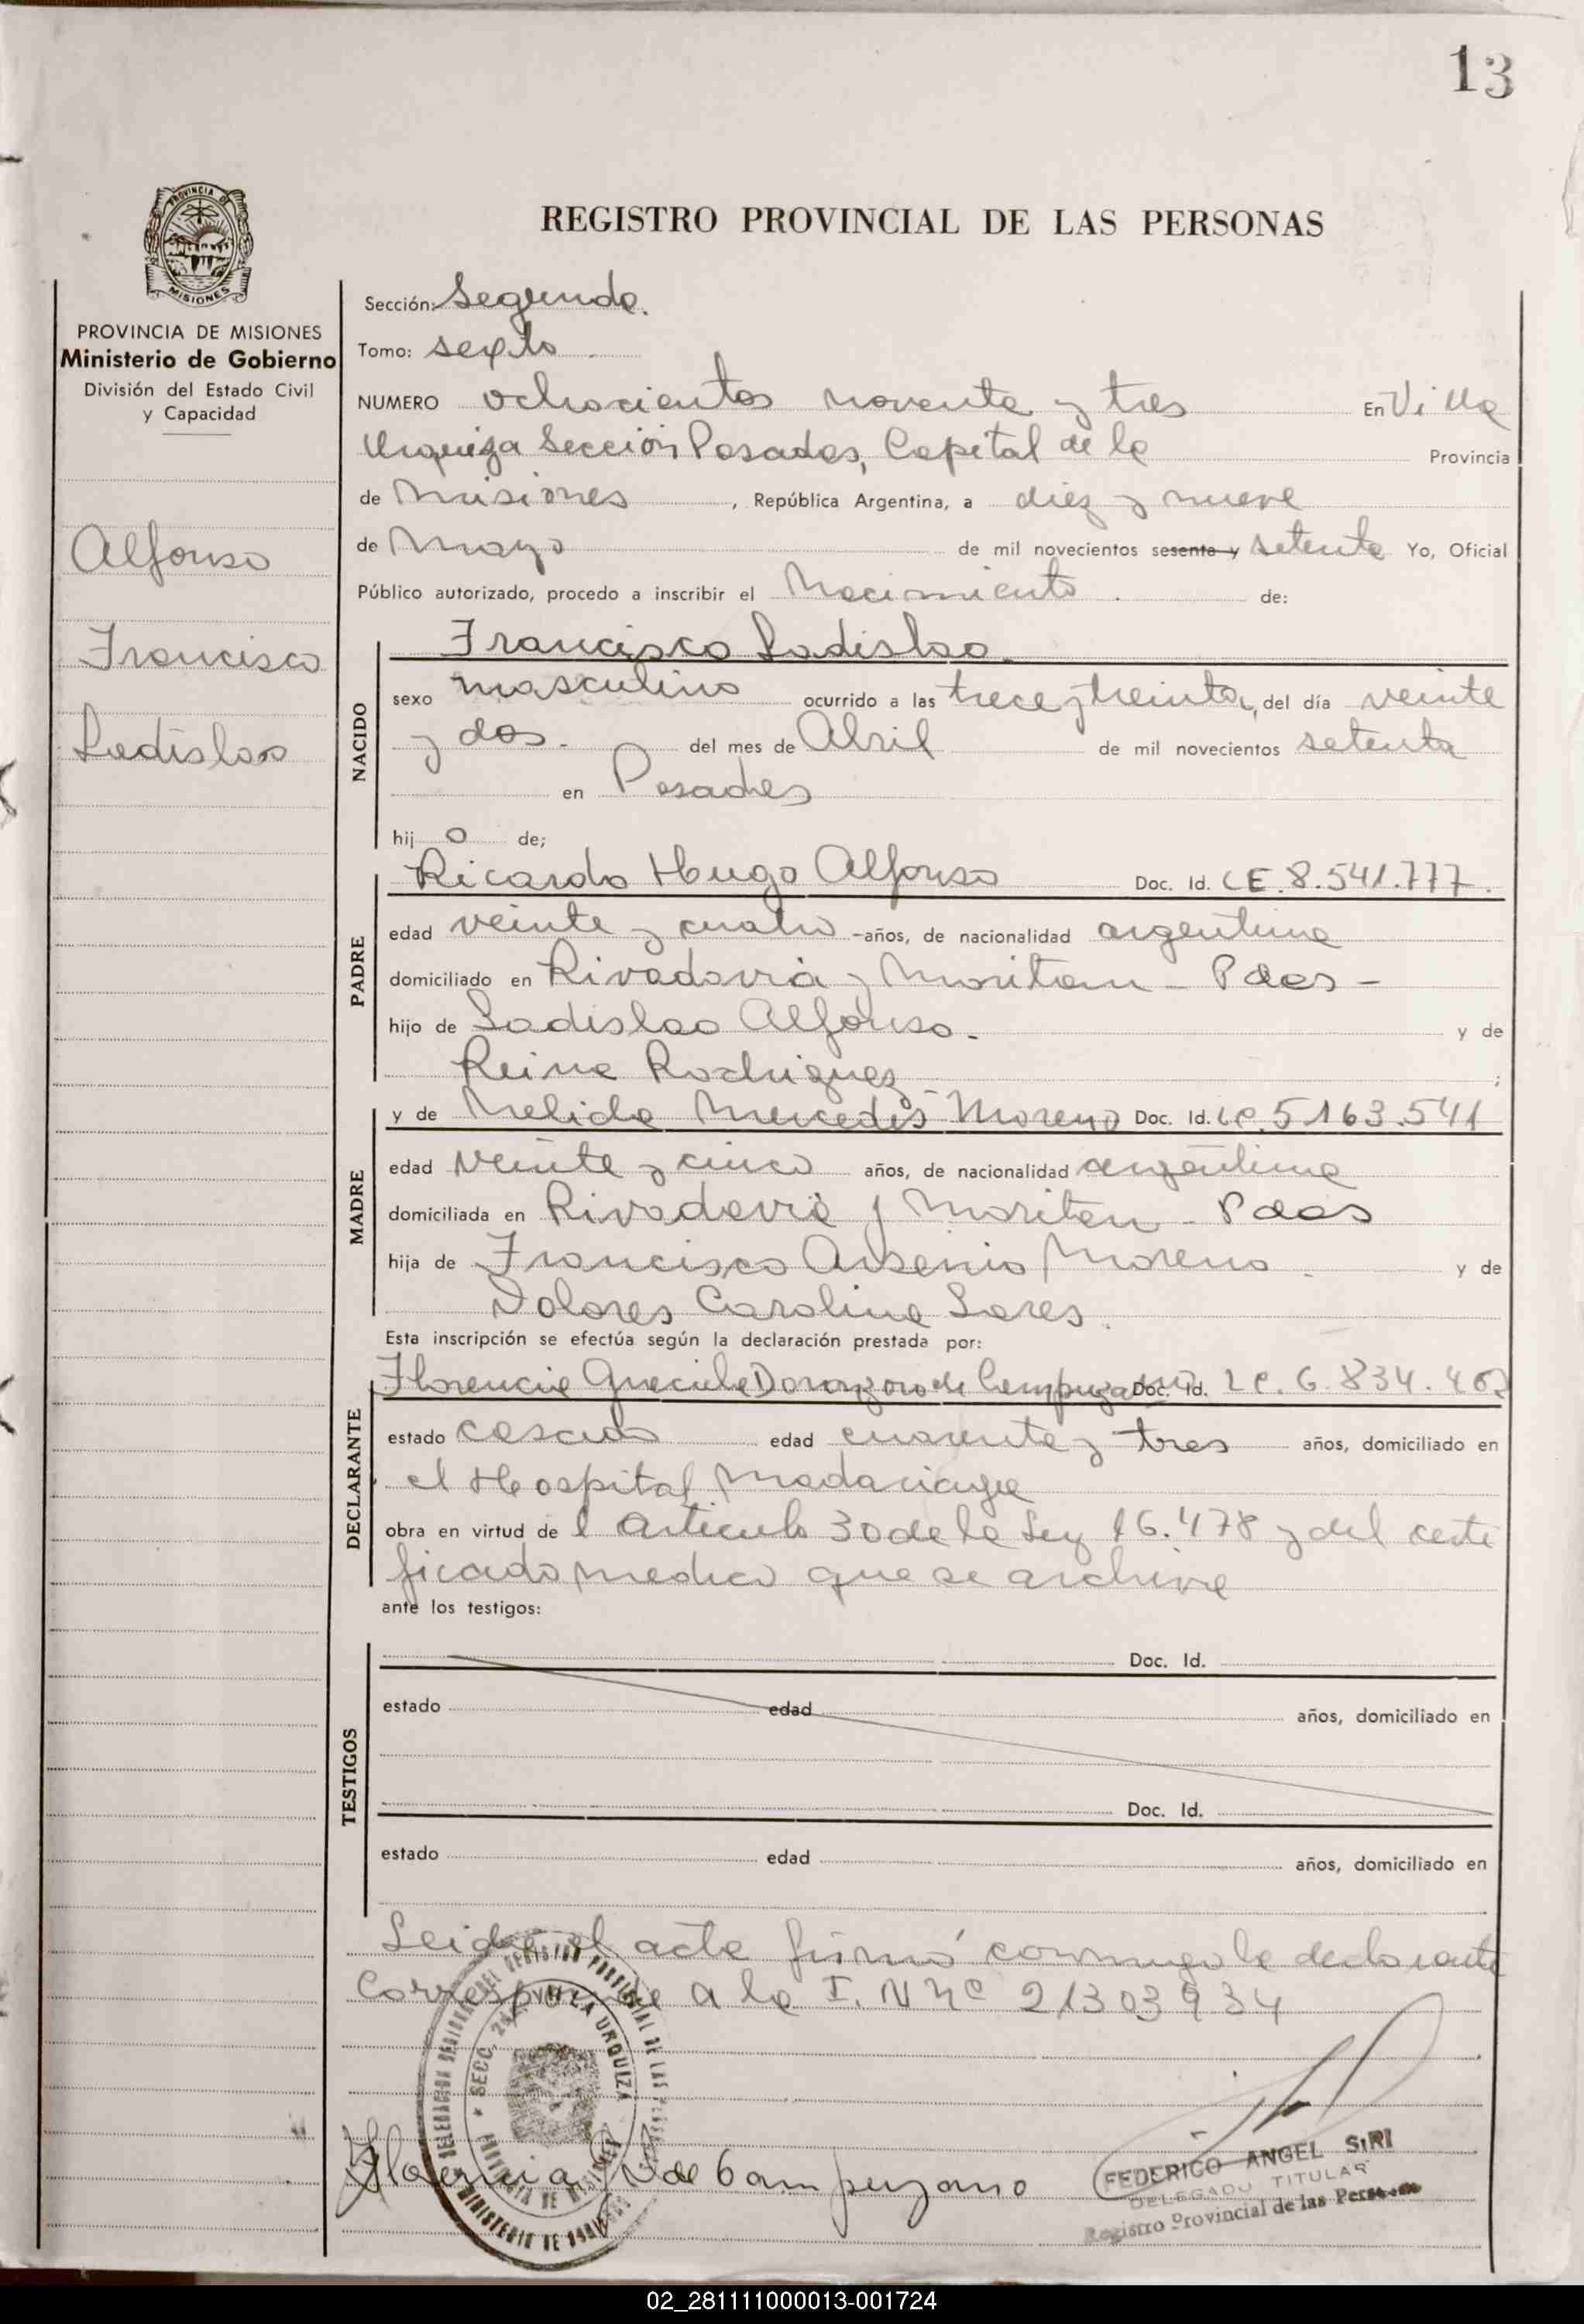 13
REGISTRO PROVINCIAL DE LAS PERSONAS
PROVINCIA DE MISIONES
Ministerio de Gobierno
División del Estado Civil
y Capacidad
Alfonso
Francisco
Ladislao
Sección: Segunda.
Tomo: sexto
NUMERO ochocientos noventa y tres En Villa
Urquiza Sección Posadas, Capital de la Provincia
de Misiones , República Argentina, a diez y nueve
de Mayo de mil novecientos sesenta y setenta Yo, Oficial
Público autorizado, procedo a inscribir el Nacimiento . de:
NACIDO
Francisco Ladislao
sexo masculino ocurrido a las trece y treinta, del día veinte
y dos. del mes de Abril de mil novecientos setenta
en Posadas
hij o de;
PADRE
Ricardo Hugo Alfonso Doc. Id. CE. 8.541.777.
edad veinte y cuatro -años, de nacionalidad argentina
domiciliado en Rivadavia y Moritan - Pdas -
hijo de Ladislao Alfonso. y de
Reina Rodriguez ;
MADRE
y de Nelida Mercedes Moreno Doc. Id. LC. 5.163.541
edad veinte y cinco años, de nacionalidad argentina
domiciliada en Rivadavia y Moritan - Pdas
hija de Francisco Arsenio Moreno . y de
Dolores Carolina Lares.
Esta inscripción se efectúa según la declaración prestada por:
DECLARANTE
Florencia Graciela Doronzoro de Campuzano Doc. Id. LC. 6.834.402
estado casada edad cuarenta y tres años, domiciliado en
el Hospital Madariaga
obra en virtud de l Articulo 30 de la Ley 16.478 y del certi
ficado medico que se archiva
ante los testigos:
TESTIGOS
Doc. Id.
estado edad años, domiciliado en
Doc. Id.
estado edad años, domiciliado en
Leida el acta firmó conmigo la declarante
Corresponde a la I. N Nº 21303934
SECC. 2a. VILLA URQUIZA
PROVINCIA DE MISIONES
MINISTERIO DE GOBIERNO
Florencia D de Campuzano
FEDERICO ANGEL SIRI
DELEGADO TITULAR
Registro Provincial de las Personas
02_281111000013-001724